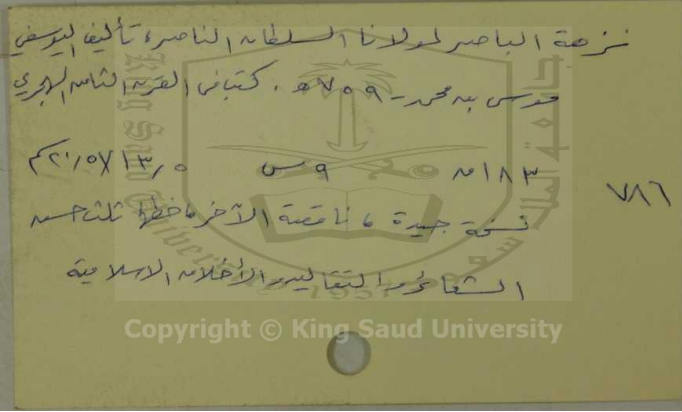 نزهة الباصر لمولانا السلطان الناصر، تأليف اليوسفي
موسى بن محمد - ٧٥٩ هـ. كتب في القرن الثامن الهجري
١٨٣ ق ٩ س ١٣٫٥ × ٢٠٫٥ سم
٧٨٦
نسخة جيدة، ناقصة الآخر، خطها ثلث حسن
الشعائر والتقاليد والأخلاق الاسلامية
1957
Copyright © King Saud University